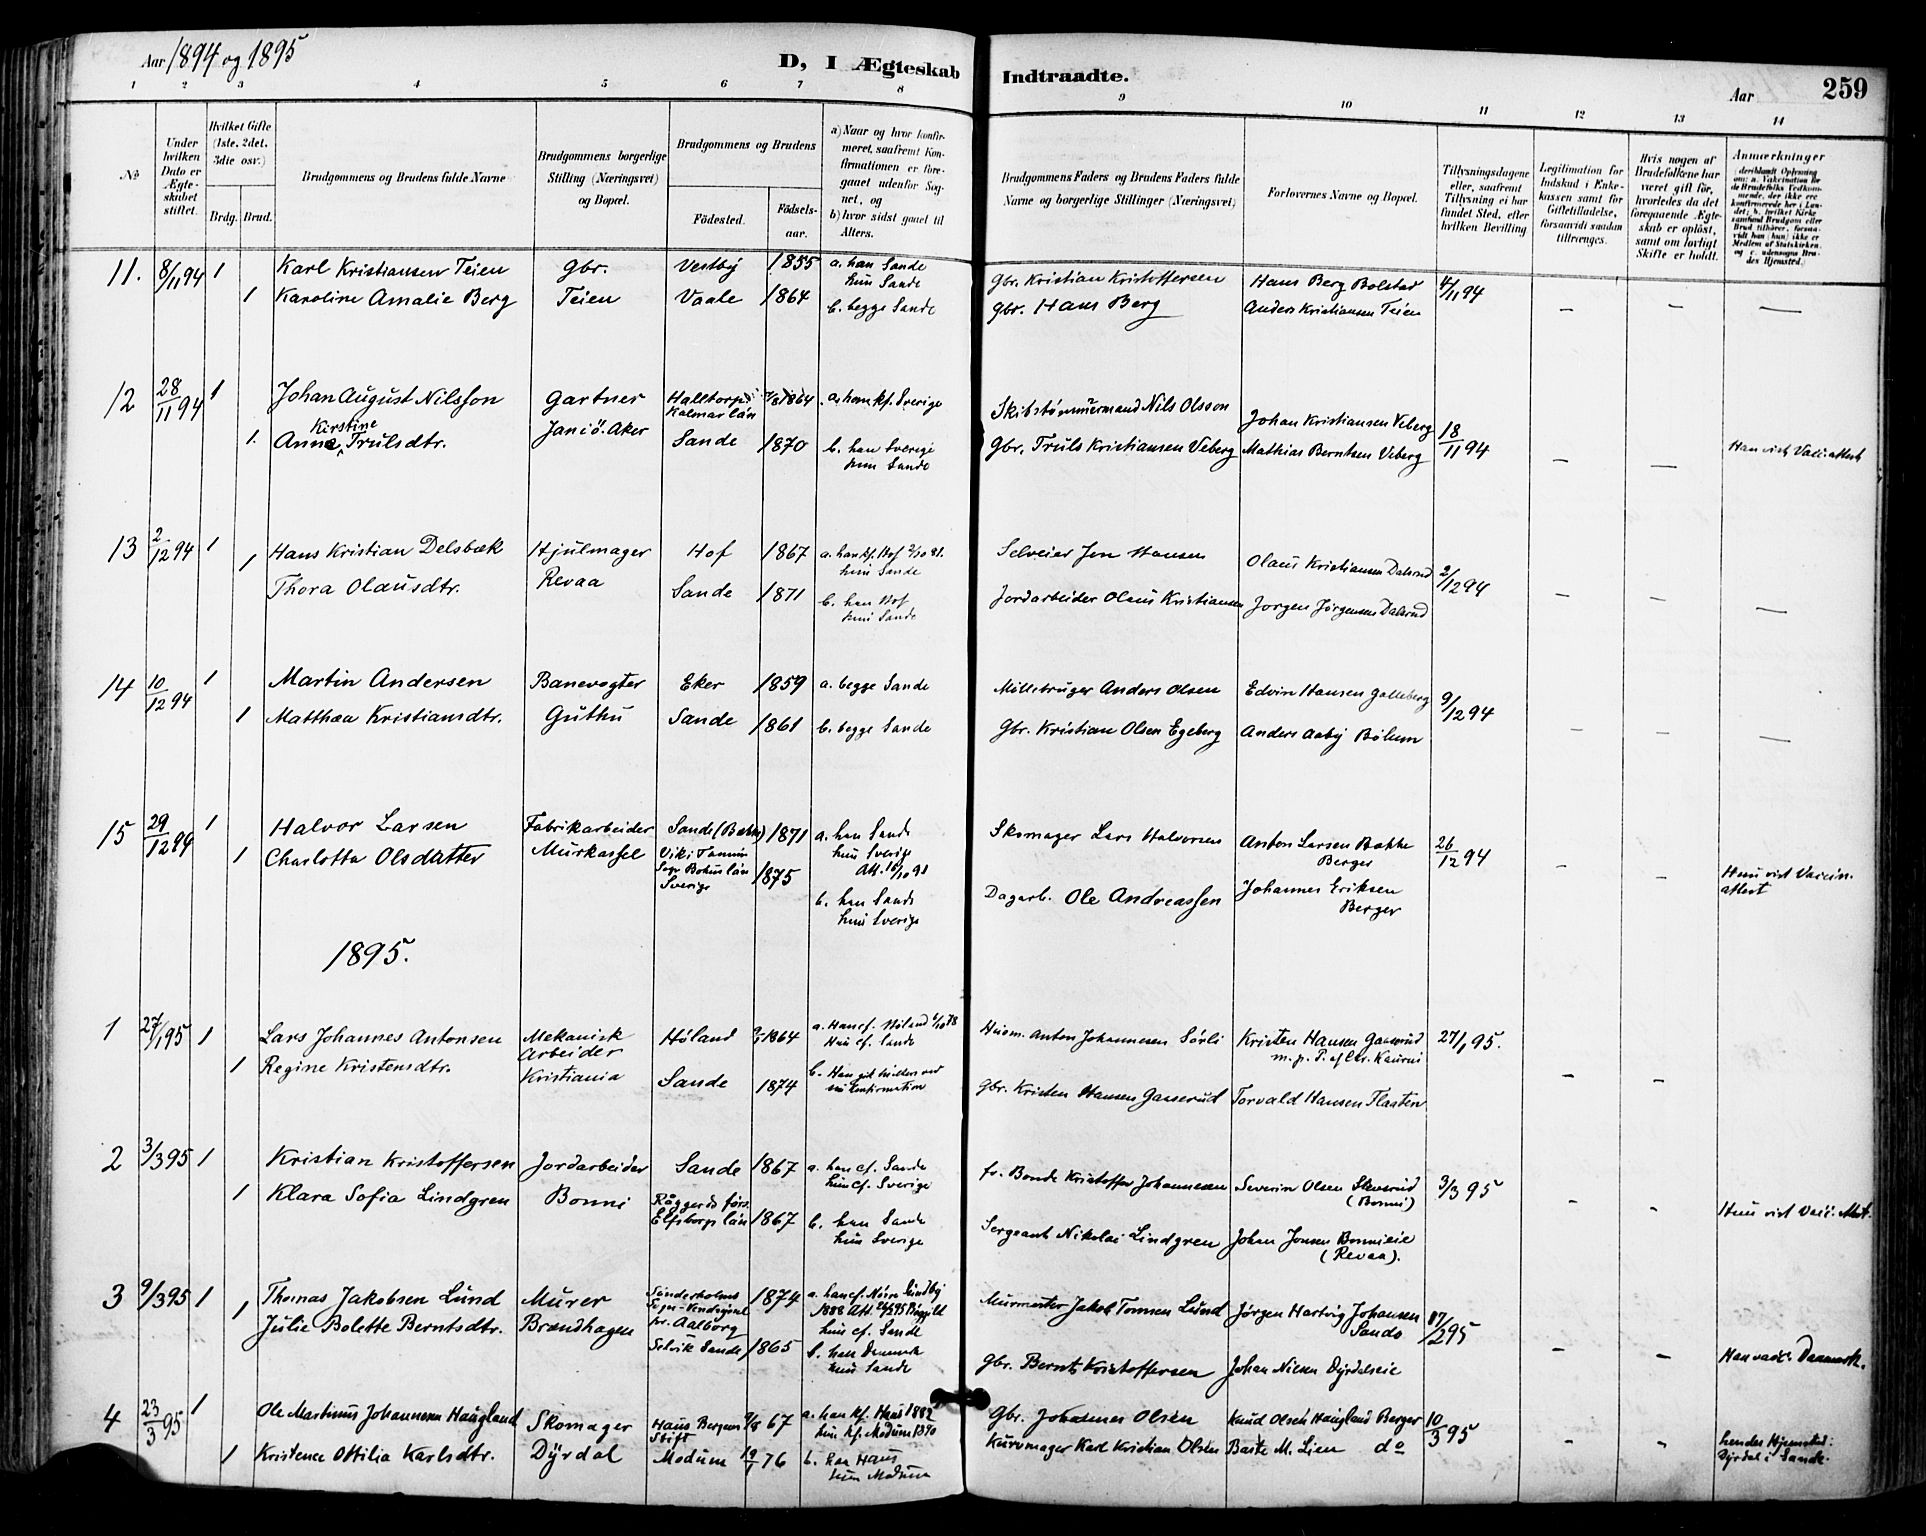 Aar 1894 og 1895
D, I Ægteskab Indtraadte.
Aar 259
1 2 3 4 5 6 7 8 9 10 11 12 13 14
No
Under hvilken Dato er Ægteskabet stiftet.
Hvilket Gifte (1ste, 2det, 3die osv.)
Brdg. Brud.
Brudgommens og Brudens fulde Navne
Brudgommens borgerlige Stilling (Næringsvei) og Bopæl.
Brudgommens og Brudens
Fødested. Fødselsaar.
a) Naar og hvor konfirmeret, saafremt Konfirmationen er foregaaet udenfor Sognet, og
b) hvor sidst gaaet til Alters.
Brudgommens Faders og Brudens Faders fulde Navne og borgerlige Stillinger (Næringsvei)
Forlovernes Navne og Bopæl.
Tillysningsdagene eller, saafremt Tillysning ei har fundet Sted, efter hvilken Bevilling
Legitimation for Indskud i Enkekassen samt for Giftetilladelse, forsaavidt saadan tiltrænges.
Hvis nogen af Brudefolkene har været gift før, hvorledes da det foregaaende Ægteskab er opløst, samt om lovligt Skifte er holdt.
Anmærkninger
11. 8/11 94 1 Karl Kristiansen Teien Gbr. Vestby 1855 a. han Sande Gbr. Kristian Kristoffersen Hans Berg Bolstad 4/11 94
hun Sande
1 Karoline Amalie Berg Teien Vaale 1864 b. begge Sande Gbr. Hans Berg Anders Kristiansen Teien — — —
12 28/11 94 1 Johan August Nilsson Gartner Halltorps 1864 a. han kf. Sverige Skibstømmermand Nils Olsson Johan Kristiansen Veberg 18/11 94
Kalmar län
Kirstine
1. Anne Trulsdtr. Janiö. Aker Sande 1870 b. han Sverige Gbr. Truls Kristiansen Veberg Mathias Berntsen Veberg — — Han vist Vacc. attest
hun Sande
13 2/12 94 1 Hans Kristian Delsbæk Hjulmager Hof 1867 a. han kf. Hof 2/10 81. Selveier Jon Hansen Olaus Kristiansen Dalsrud 2/12 94
hun Sande
1 Thora Olausdtr. Revaa Sande 1871 b. han Hof Jordarbeider Olaus Kristiansen Jørgen Jørgensen Dalsrud — — —
hun Sande
14 10/12 94 1 Martin Andersen Banevogter Eker 1859 a. begge Sande Møllebruger Anders Olsen Edvin Hansen Galleberg 9/12 94
1 Matthæa Kristiansdtr. Guthu Sande 1861 b. begge Sande Gbr. Kristian Olsen Egeberg Anders Aaby Bølum — — —
15 29/12 94 1 Halvor Larsen Fabrikarbeider Sande 1871 a. han Sande Skomager Lars Halvorsen Anton Larsen Bakke 26/12 94
Berger
hun Sverige
1 Charlotta Olsdatter Murkassel
Sogn Bohus län
Sverige 1875
b. han Sande Dagarb. Ole Andreassen Johannes Eriksen — — Hun vist Vaccin.
hun Sverige Berger attest
1895.
1 27/1 95 1 Lars Johannes Antonsen Mekanisk Høland 1864 a. Han cf. Høland 6/10 78 Husm. Anton Johannesen Sørli Kristen Hansen Gaaserud 27/1 95.
Arbeider Hun cf. Sande
1 Regine Kristensdtr. Kristiania Sande 1874 b. Gbr. Kristen Hansen Gaaserud Torvald Hansen Flaaten — —
2 3/3 95 1 Kristian Kristoffersen Jordarbeider Sande 1867 a. han cf. Sande fr. Bonde Kristoffer Johannesen Severin Olsen Skverud 3/3 95
hun cf. Sverige (Bonni)
1 Klara Sofia Lindgren Bonni Råggerds förs. 1867 b. han Sande Sergeant Nikolai Lindgren Johan Jonsen Bonnieie — — Hun vist Vacc. Att.
Elfsborgs län hun Sverige (Revaa).
3 9/3 95 1 Thomas Jakobsen Lund Murer Sønderholms 1874 a. han cf. Nørre Sundby Murmester Jakob Tomsen Lund Jørgen Hartvig Johansen 17/2 95
Sogn Sande
1 Julie Bolette Berntsdtr. Brændhagen Aalborg hun cf. Sande
Selvik Sande 1865 b. han Danmark Gbr. Bernt Kristoffersen Johan Nilsen Dyrdalseie — — Han vacc. Danmark.
hun Sande
4 23/3 95 1 Ole Martinus Johannesen Haugland Skomager Haus Bergens 67 a. han kf. Haus 1882 Gbr. Johannes Olsen Knud Olsen Haugland Berger 10/3 95
Stift hun kf. Modum 1890
1 Kristence Ottilia Karlsdtr. Dyrdal Modum 76 b. han Haus Kurvmager Karl Kristian Olsen Barte M. Lien do — — hendes Hjemsted:
hun Modum Dyrdal i Sande.